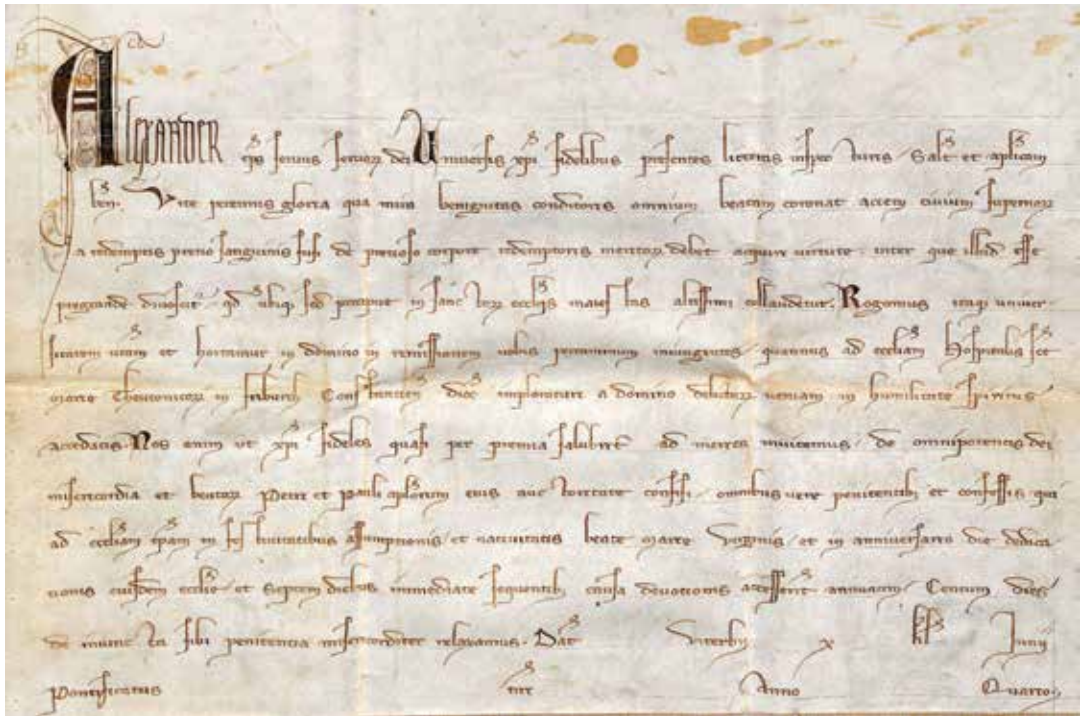 Alexander ep̄s seruus seruoꝝ dei Uniuersis xp̄i fidelibus presentes litteras inspecturis Salt̄ et aplicam
ben̄. Vite perennis gloria qua mira benignitas conditoris omnium beatam coronat aciem ciuium supernoꝝ
a redemptis pretio sanguinis fusi de pretioso corpore redemptoris meritoꝝ debet acquiri uirtute. inter que illud esse
pregrande dinoscit̄. qđ ubiq̨ sed precipue in sanctoꝝ eccl̄iis maiestas altissimi collaudetur. Rogamus itaq̨ uniuer-
sitatem ur̄am et hortamur in domino in remissionem uobis peccaminum iniungentes. quatinus ad eccl̄iam Hospitalis sc̄e
marie Theutonicoꝝ in friburch Constantien̄ dioc̄ imploraturi a domino delictoꝝ ueniam in humilitate spiritus
accedatis. Nos enim ut xp̄i fideles quasi per premia salubrit̄ ad merita inuitemus. de omnipotentis dei
misericordia et beatoꝝ Petri et Pauli apl̄orum eius auctoritate confisi. omnibus uere penitentib; et confessis qui
ad eccl̄iam ip̄am in festiuitatibus assumptionis. et natiuitatis beate marie Virginis. et in anniuersario die dedica
tionis eiusdem eccl̄ie. et septem diebus immediate sequentib; causa deuotionis accesserint annuatim. Centum dies
de iniuncta sibi penitentia misericorditer relaxamus. Dat̄ Viterbij x kl̄ Iunij
Pontificatus nr̄i Anno Quarto.